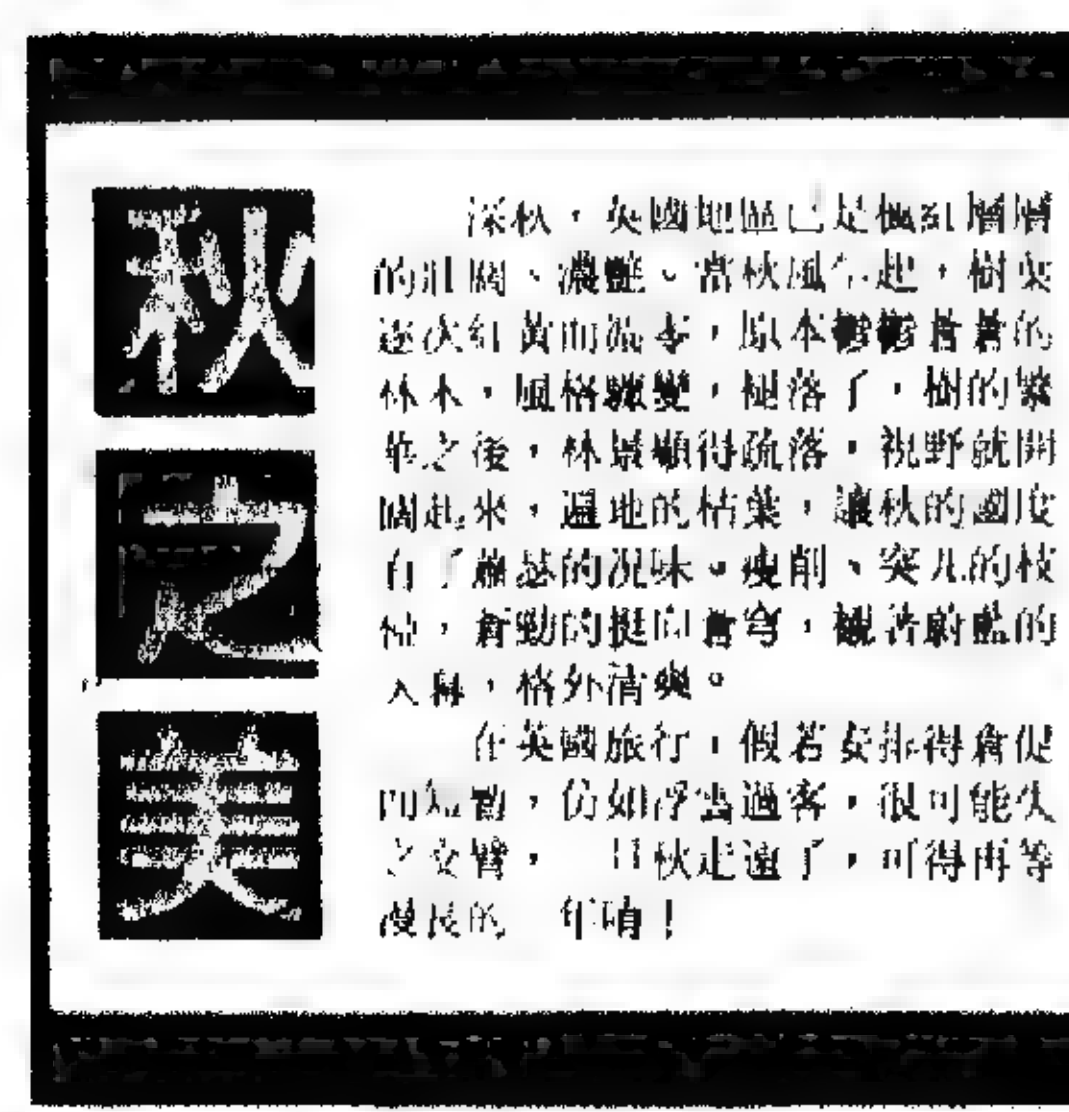 秋之美
深秋，英國地區已是楓紅層層
的壯闊、濃艷。當秋風乍起，樹葉
逐次紅黃而凋零，原本鬱鬱蒼蒼的
林木，風格驟變，褪落了，樹的繁
華之後，林景顯得疏落，視野就開
闊起來，遍地的枯葉，讓秋的國度
有了蕭瑟的況味。瘦削、突兀的枝
椏，蒼勁的挺向蒼穹，襯著蔚藍的
天幕，格外清爽。
在英國旅行，假若安排得倉促
而短暫，仿如浮雲過客，很可能失
之交臂，一旦秋走遠了，可得再等
漫長的一年唷！